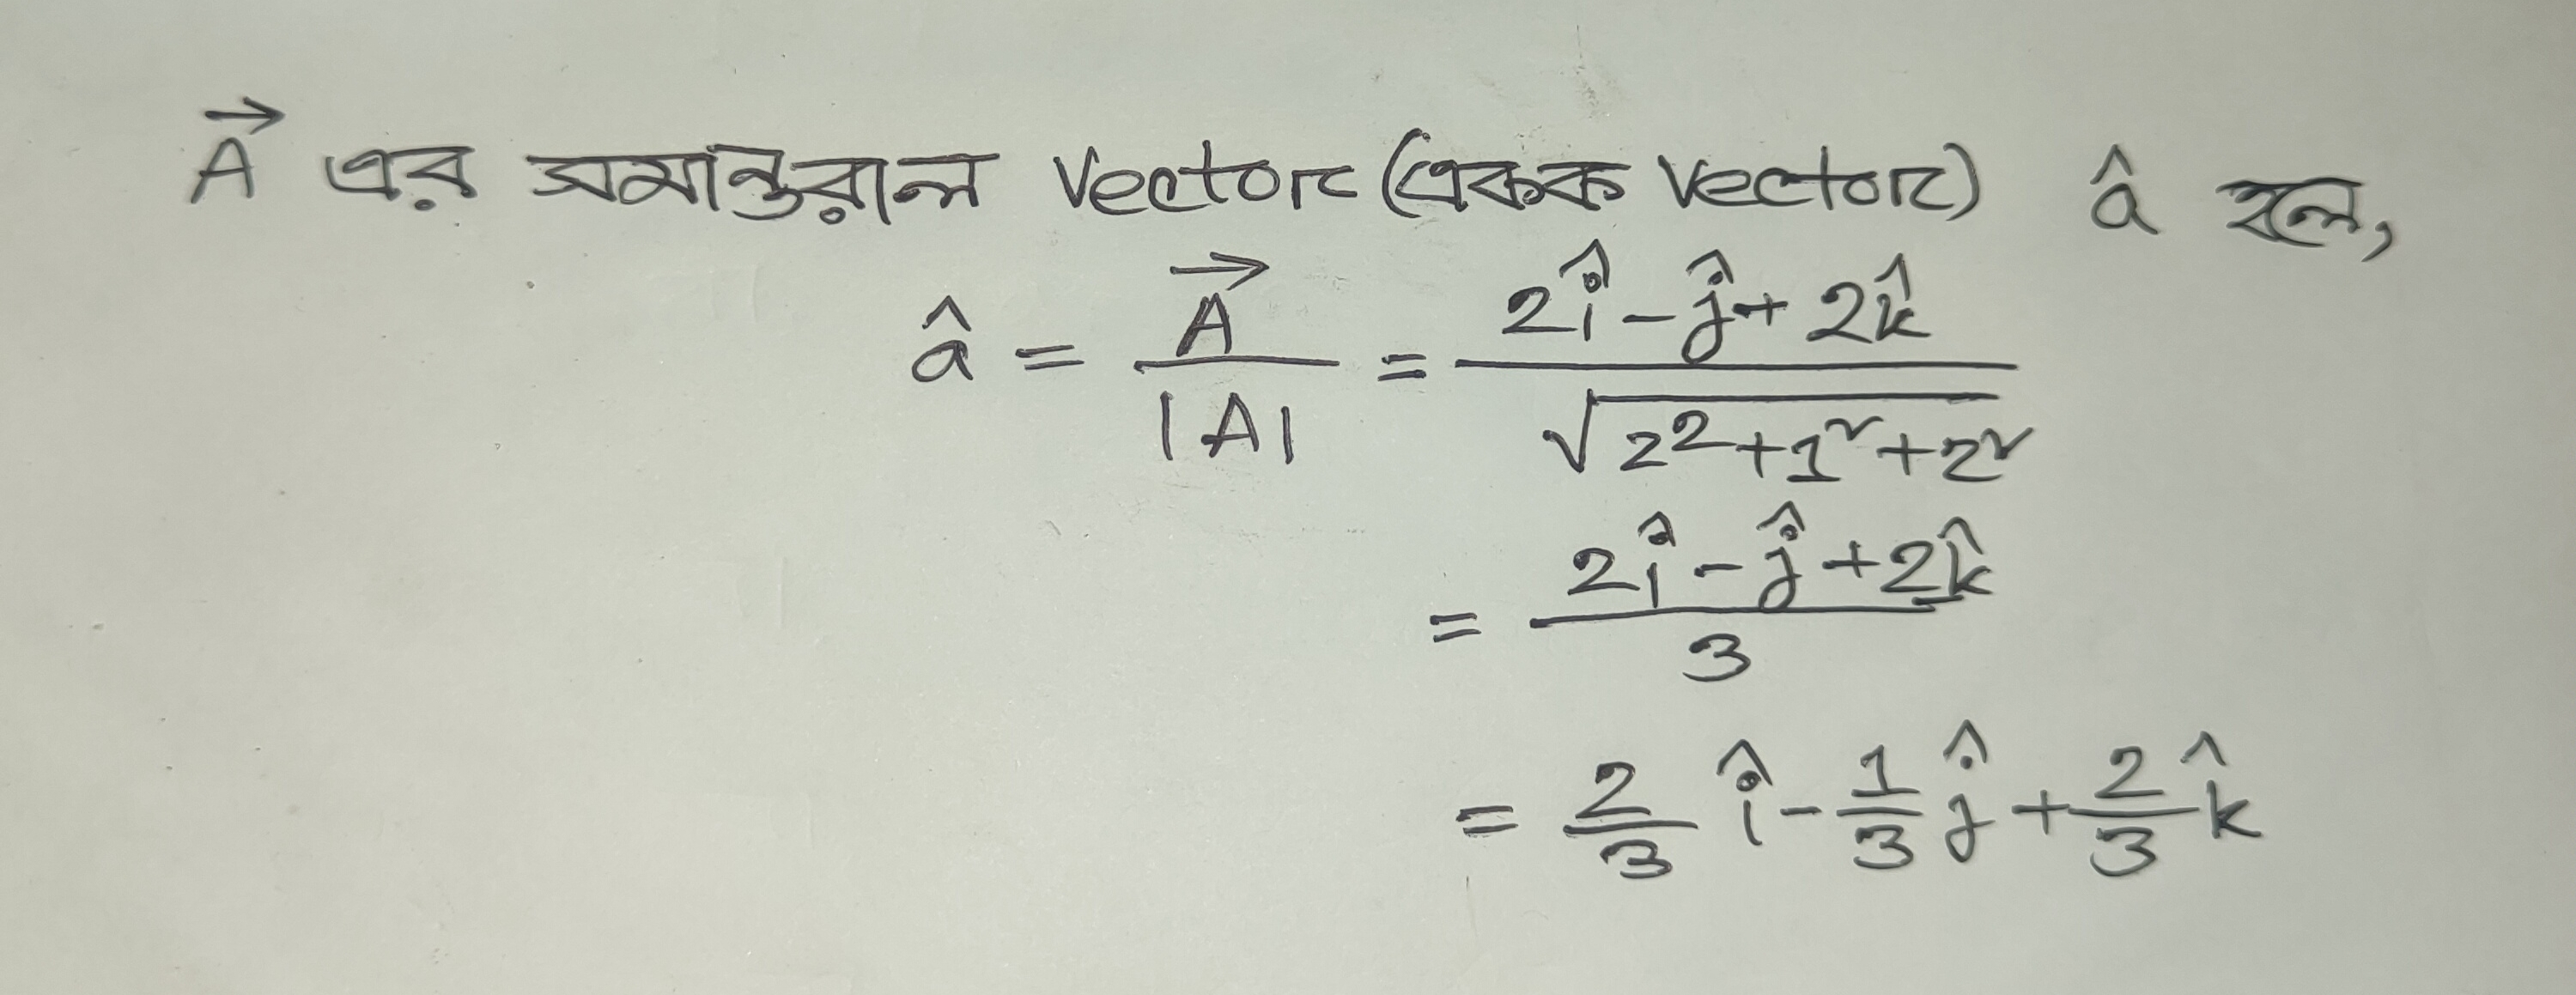 $\vec{A}$ এর সমান্তরাল vector (একক vector) $\hat{a}$ হলে,
$\hat{a} = \frac{\vec{A}}{|A|} = \frac{2\hat{i} - \hat{j} + 2\hat{k}}{\sqrt{2^2 + 1^2 + 2^2}}$
$= \frac{2\hat{i} - \hat{j} + 2\hat{k}}{3}$
$= \frac{2}{3}\hat{i} - \frac{1}{3}\hat{j} + \frac{2}{3}\hat{k}$